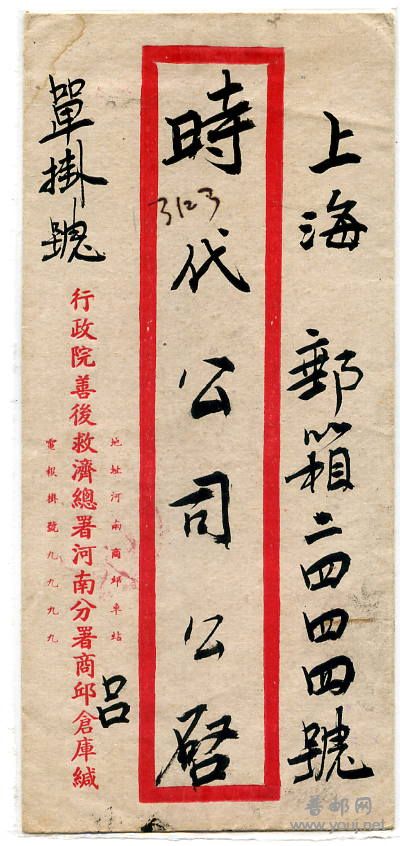 上海 郵箱二四四四號
時代公司公啓
3123
單掛號
地址河南商邱車站
行政院善後救濟總署河南分署商邱倉庫緘
呂
電報掛號九九九九
普邮网
www.youj.net